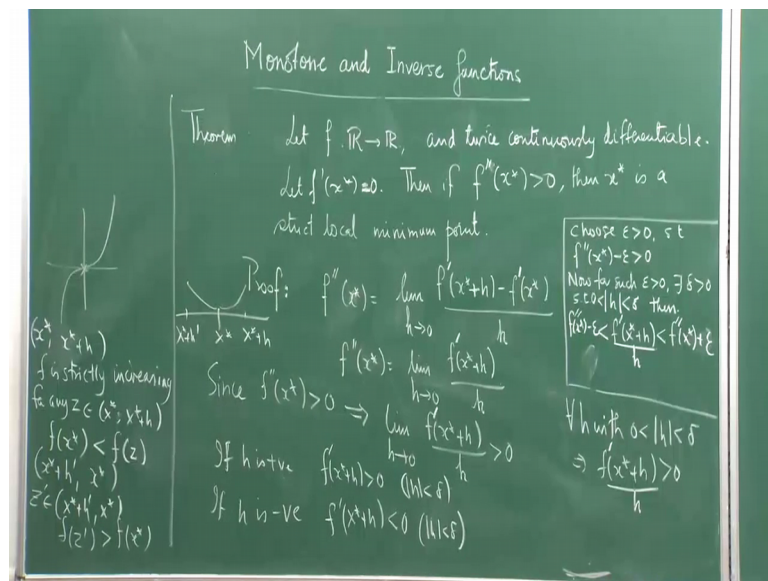 Monotone and Inverse functions
Theorem Let f: ℝ→ℝ, and twice continuously differentiable.
Let f'(x*)=0. Then if f''(x*)>0, then x* is a
strict local minimum point.
Proof: f''(x*) = lim_{h→0} (f'(x*+h) - f'(x*))/h
x*+h' x* x*+h
f''(x*) = lim_{h→0} f'(x*+h)/h
Since f''(x*)>0 ⟹ lim_{h→0} f'(x*+h)/h > 0
If h is +ve f'(x*+h)>0 (|h|<δ)
If h is -ve f'(x*+h)<0 (|h|<δ)
choose ε>0, s t
f''(x*)-ε>0
Now for such ε>0, ∃ δ>0
s t 0<|h|<δ then
f''(x*)-ε < f'(x*+h)/h < f''(x*)+ε
∀ h with 0<|h|<δ
⇒ f'(x*+h)/h > 0
(x*, x*+h)
f is strictly increasing
for any z ∈ (x*, x*+h)
f(x*) < f(z)
(x*+h', x*)
z' ∈ (x*+h', x*)
f(z') > f(x*)